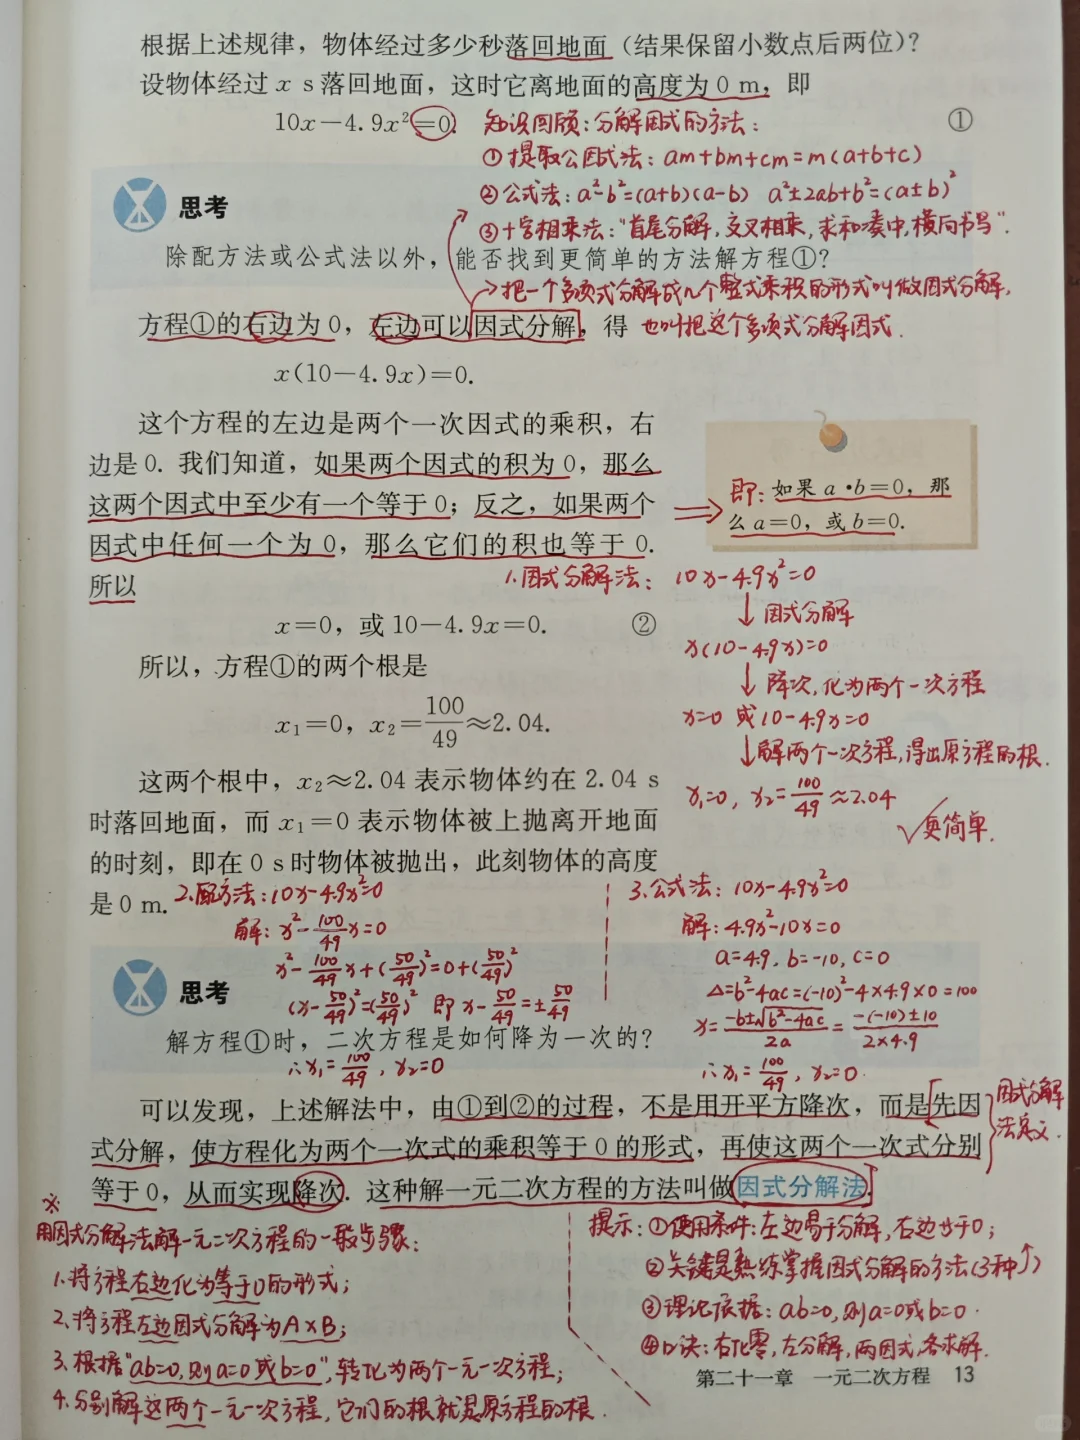 根据上述规律，物体经过多少秒落回地面（结果保留小数点后两位）？
设物体经过 x s 落回地面，这时它离地面的高度为 0 m，即
10x－4.9x²＝0. ①
知识回顾：分解因式的方法：
①提取公因式法：am+bm+cm=m(a+b+c)
②公式法：a²-b²=(a+b)(a-b) a²±2ab+b²=(a±b)²
③十字相乘法："首尾分解，交叉相乘，求和凑中，横向书写".
思考
除配方法或公式法以外，能否找到更简单的方法解方程①？
把一个多项式分解成几个整式乘积的形式叫做因式分解，
也叫把这个多项式分解因式.
方程①的右边为 0，左边可以因式分解，得
x(10－4.9x)＝0.
这个方程的左边是两个一次因式的乘积，右
边是 0. 我们知道，如果两个因式的积为 0，那么
这两个因式中至少有一个等于 0；反之，如果两个
因式中任何一个为 0，那么它们的积也等于 0.
所以
即：如果 a·b＝0，那
么 a＝0，或 b＝0.
x＝0，或 10－4.9x＝0. ②
所以，方程①的两个根是
x₁＝0，x₂＝100/49≈2.04.
这两个根中，x₂≈2.04 表示物体约在 2.04 s
时落回地面，而 x₁＝0 表示物体被上抛离开地面
的时刻，即在 0 s 时物体被抛出，此刻物体的高度
是 0 m.
1.因式分解法：10x-4.9x²=0
↓因式分解
x(10-4.9x)=0
↓降次，化为两个一次方程
x=0 或10-4.9x=0
↓解两个一次方程，得出原方程的根.
x₁=0，x₂=100/49≈2.04
√更简单.
2.配方法：10x-4.9x²=0
解：x²-100/49x=0
x²-100/49x+(50/49)²=0+(50/49)²
(x-50/49)²=(50/49)² 即 x-50/49=±50/49
∴x₁=100/49，x₂=0
3.公式法：10x-4.9x²=0
解：4.9x²-10x=0
a=4.9，b=-10，c=0
Δ=b²-4ac=(-10)²-4×4.9×0=100
x=(-b±√(b²-4ac))/2a=(-(-10)±10)/(2×4.9)
∴x₁=100/49，x₂=0.
思考
解方程①时，二次方程是如何降为一次的？
可以发现，上述解法中，由①到②的过程，不是用开平方降次，而是先因
式分解，使方程化为两个一次式的乘积等于 0 的形式，再使这两个一次式分别
等于 0，从而实现降次. 这种解一元二次方程的方法叫做因式分解法.
因式分解
法定义.
※
用因式分解法解一元二次方程的一般步骤：
1.将方程右边化为等于0的形式；
2.将方程左边因式分解为A×B；
3.根据"ab=0，则a=0或b=0"，转化为两个一元一次方程；
4.分别解这两个一元一次方程，它们的根就是原方程的根.
提示：①使用条件：左边易于分解，右边等于0；
②关键是熟练掌握因式分解的方法(3种↑)
③理论依据：ab=0，则a=0或b=0.
④口诀：右化零，左分解，两因式，各求解.
第二十一章 一元二次方程 13